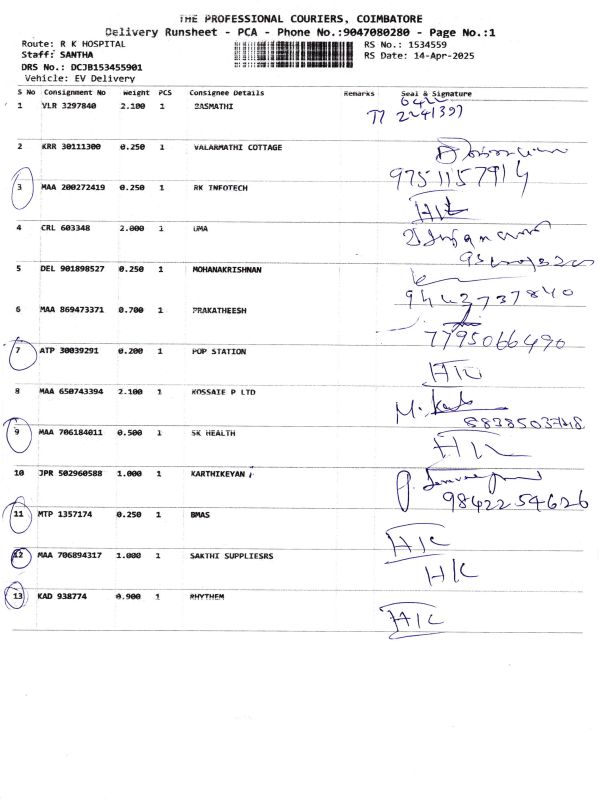 THE PROFESSIONAL COURIERS, COIMBATORE
Delivery Runsheet - PCA - Phone No.:9047080280 - Page No.:1
Route: R K HOSPITAL RS No.: 1534559
Staff: SANTHA RS Date: 14-Apr-2025
DRS No.: DCJB153455901
Vehicle: EV Delivery
S No Consignment No Weight PCS Consignee Details Remarks Seal & Signature
1 VLR 3297840 2.100 1 BASMATHI
2 KRR 30111300 0.250 1 VALARMATHI COTTAGE
9751157914
3 MAA 200272419 0.250 1 RK INFOTECH
H/C
4 CRL 603348 2.000 1 UMA
5 DEL 901898527 0.250 1 MOHANAKRISHNAN
9443737840
6 MAA 869473371 0.700 1 PRAKATHEESH
7795066490
7 ATP 30039291 0.200 1 POP STATION
H/C
8 MAA 650743394 2.100 1 KOSSAIE P LTD
9 MAA 706184011 0.500 1 SK HEALTH
H/C
10 JPR 502960588 1.000 1 KARTHIKEYAN
9842254626
11 MTP 1357174 0.250 1 BMAS
H/C
12 MAA 706894317 1.000 1 SAKTHI SUPPLIESRS
H/C
13 KAD 938774 0.900 1 RHYTHEM
H/C